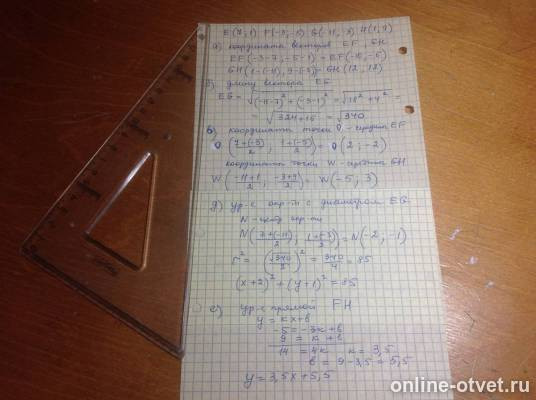 E(7;1) F(-3;-5) G(-11;-3) H(1;9)
а) координаты векторов EF, GH
EF(-3-7; -5-1) = EF(-10;-6)
GH(1-(-11); 9-(-3)) = GH(12;12)
б) длину вектора EG
EG = √(-11-7)² + (-3-1)² = √18² + 4² =
= √324+16 = √340
в) координаты точки O - середина EF
O(7+(-3)/2; 1+(-5)/2) = O(2;-2)
координаты точки W - середина GH
W(-11+1/2; -3+9/2) = W(-5;3)
д) ур-е окр-ти с диаметром EG
N - центр окр-ти
N(7+(-11)/2; 1+(-3)/2) = N(-2;-1)
r² = (√340/2)² = 340/4 = 85
(x+2)² + (y+1)² = 85
е) ур-е прямой FH
y = kx+b
-5 = -3k+b
9 = k+b
14 = 4k k = 3,5
b = 9-3,5 = 5,5
y = 3,5x+5,5
online-otvet.ru